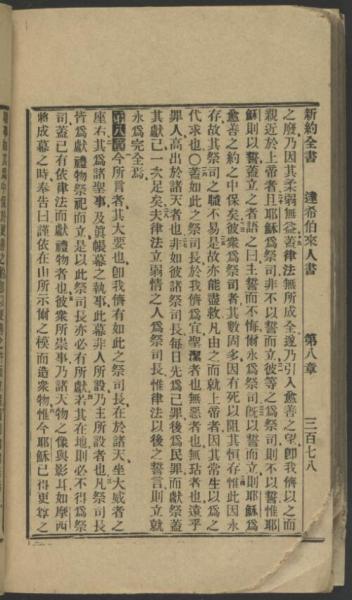 新約全書　達希伯來人書　第八章　三百七八
之廢乃因其柔弱無益蓋律法無所成全遂乃引入愈善之望卽我儕以之而
親近於上帝者且耶穌爲祭司非不以誓而立彼等之爲祭司則不以誓惟耶
穌則以誓蓋立之者語之曰主誓而不悔爾永爲祭司旣以誓而立則耶穌爲
愈善之約之中保矣彼衆爲祭司者其數固多因有死以阻其恒存惟此因永
存故其祭司之職不易是故亦能盡救凡由之而就上帝者因其常生以爲之
代求也〇蓋如此之祭司長於我儕爲宜聖潔者也無惡者也無玷者也遠乎
罪人高出於諸天者也非如彼諸祭司長每日先爲己罪後爲民罪而獻祭蓋
其獻己一次足矣夫律法立弱情之人爲祭司長惟律法以後之誓言則立就
永爲完全焉
第八章今所言者其大要也卽我儕有如此之祭司長在於諸天坐大威者之
座右其爲諸聖事及眞帳幕之執事此幕非人所設乃主所設者也凡祭司長
皆爲獻禮物祭祀而立是以此祭司長亦必有所獻若其在地則必不得爲祭
司蓋已有依律法而獻禮物者也彼衆所崇事乃諸天物之像與影耳如摩西
將成幕之時奉告曰謹依在山所示爾之模而造衆物惟今耶穌已得更尊之